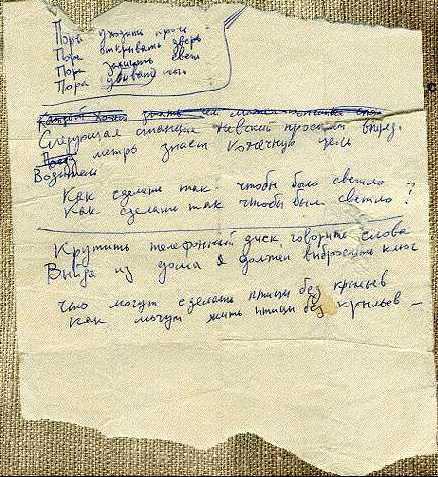 Пора уходить прочь
Пора открывать дверь
Пора зажигать свет
Пора убивать
Следующая станция Невский проспект вперд.
метро знает конечную цель
Водитель
Как сделать так чтобы было светло
Как сделать так чтобы было светло ?
Крутить телефонный диск говорить слова
Выйдя из дома я должен выбросить ключ
Что могут сделать птицы без крыльев
Как могут жить птицы без крыльев –